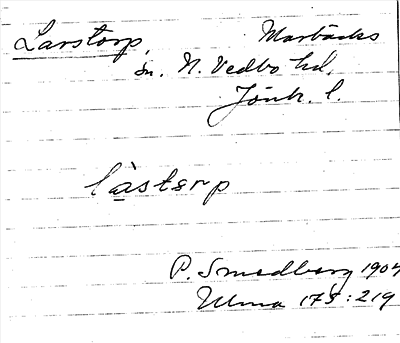 Larstorp, Marbäcks
sn. N. Vedbo hd,
Jönk. l.
làstorp
P. Smedberg 1904
Ulma 175:219